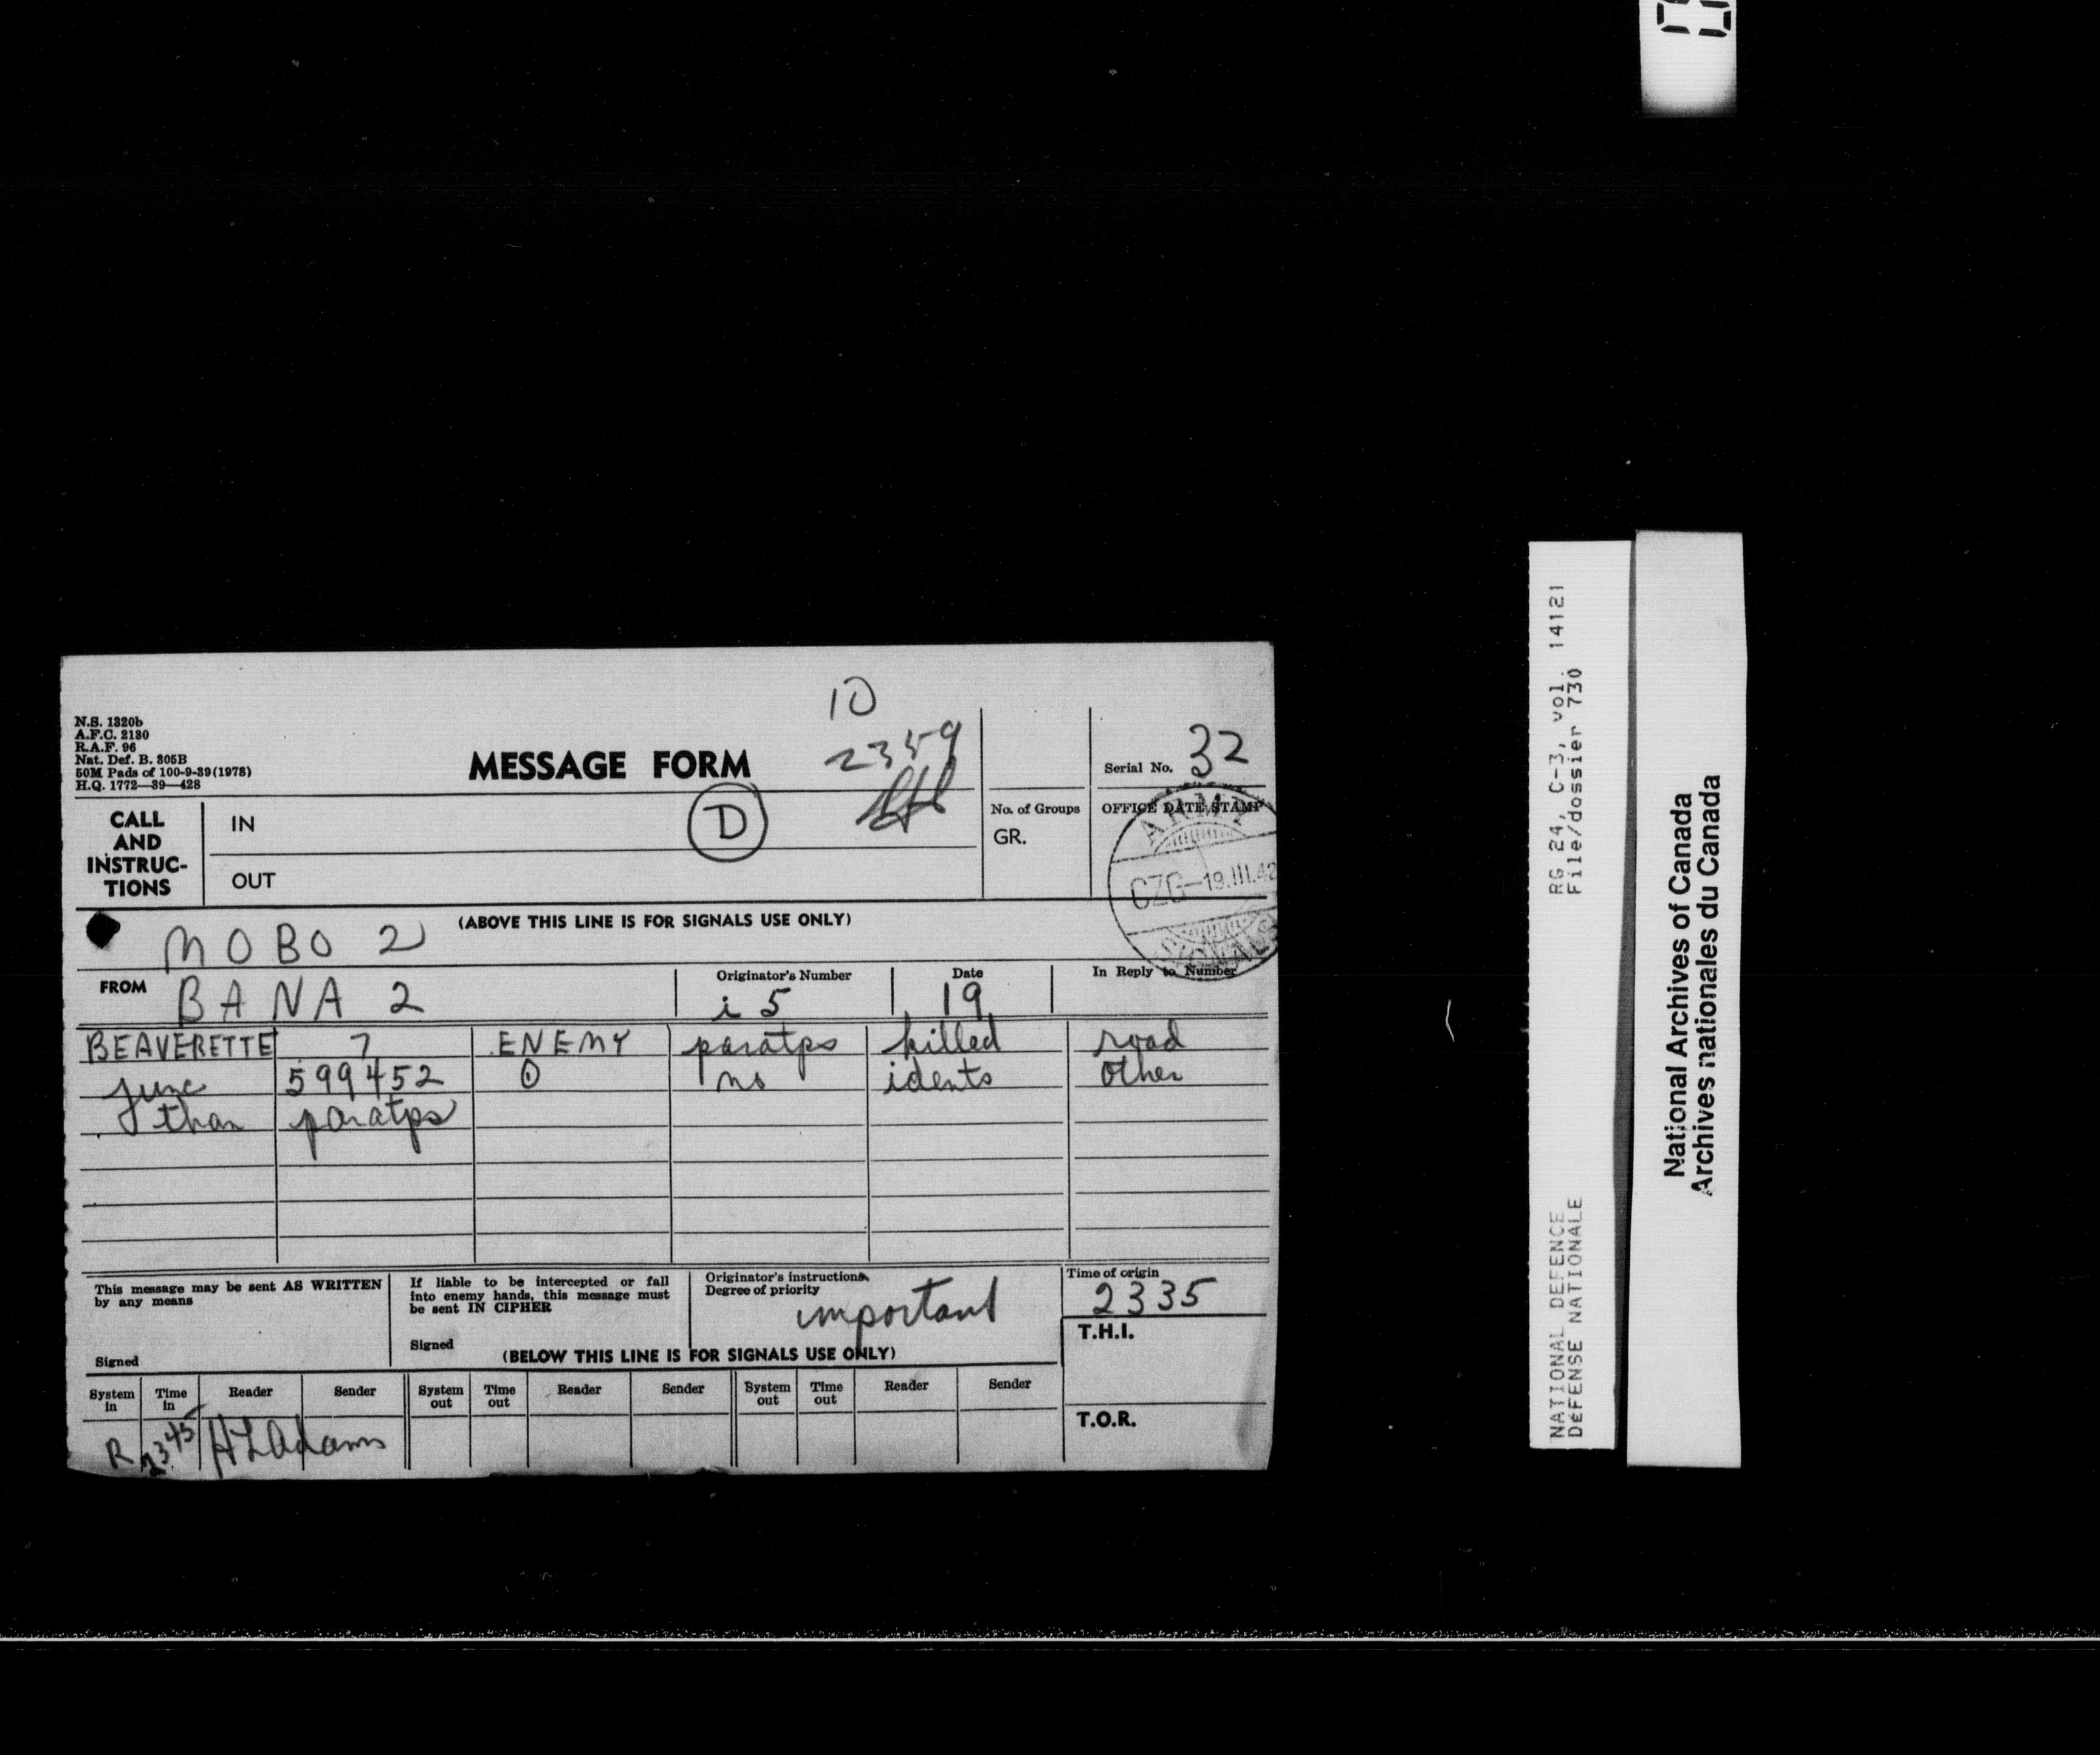 10
N.S. 1320b
A.F.C. 2130
R.A.F. 96
Nat. Def. B. 305B
50M Pads of 100-9-39 (1978)
H.Q. 1772—39—428
MESSAGE FORM
2359
Serial No. 32
CALL AND INSTRUC-TIONS
IN
D
No. of Groups
GR.
OFFICE DATE STAMP
ARMY
CZG-19.III.42
SIGNALS
OUT
(ABOVE THIS LINE IS FOR SIGNALS USE ONLY)
MOBO 2
FROM BANA 2
Originator's Number
i 5
Date
19
In Reply to Number
BEAVERETTE 7 ENEMY paratps killed road
junc 599452 ⊙ no idents other
than paratps
This message may be sent AS WRITTEN
by any means
Signed
If liable to be intercepted or fall
into enemy hands, this message must
be sent IN CIPHER
Signed
Originator's instructions
Degree of priority
important
Time of origin
2335
T.H.I.
(BELOW THIS LINE IS FOR SIGNALS USE ONLY)
System in Time in Reader Sender System out Time out Reader Sender System out Time out Reader Sender
T.O.R.
R 2345 HLAdams
RG 24, C-3, vol. 14121
File/dossier 730
NATIONAL DEFENCE
DéFENSE NATIONALE
National Archives of Canada
Archives nationales du Canada